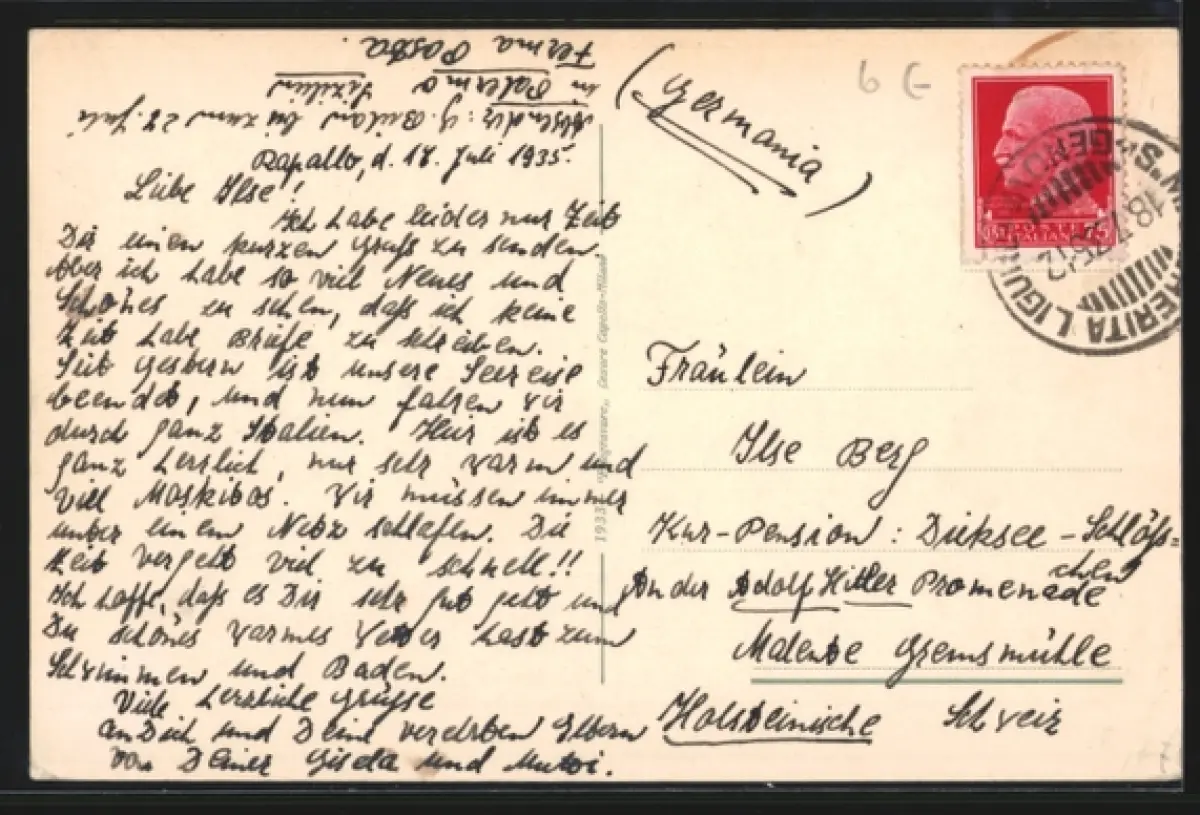 Ferma Posta.
in Palermo
Sizilien
bis zum 28. Juli
Rapallo, d. 17. Juli 1935.
Liebe Ilse!
Ich habe leider nur Zeit
Dir einen kurzen Gruß zu senden.
Aber ich habe so viel Neues und
Schönes zu sehen, daß ich keine
Zeit habe Briefe zu schreiben.
Seit gestern ist unsere Seereise
beendet, und nun fahren wir
durch ganz Italien. Hier ist es
ganz herrlich, nur sehr warm und
viel Moskitos. Wir müssen immer
unter einem Netz schlafen. Die
Zeit vergeht viel zu schnell!!
Ich hoffe, daß es Dir sehr gut geht und
Du schönes warmes Wetter hast zum
Schwimmen und Baden.
Viele herzliche Grüsse
an Dich und Deine verehrten Eltern
von Deiner Gisela und Mutti.
1933
(Germania)
6 €-
POSTE
ITALIANE
18.7.35
MARGHERITA LIGURE
GENOVA
Fräulein
Ilse Berg
Kur-Pension: Dieksee-Schlöss=
chen
An der Adolf Hitler Promenade
Malente Gremsmühle
Holsteinische Schweiz